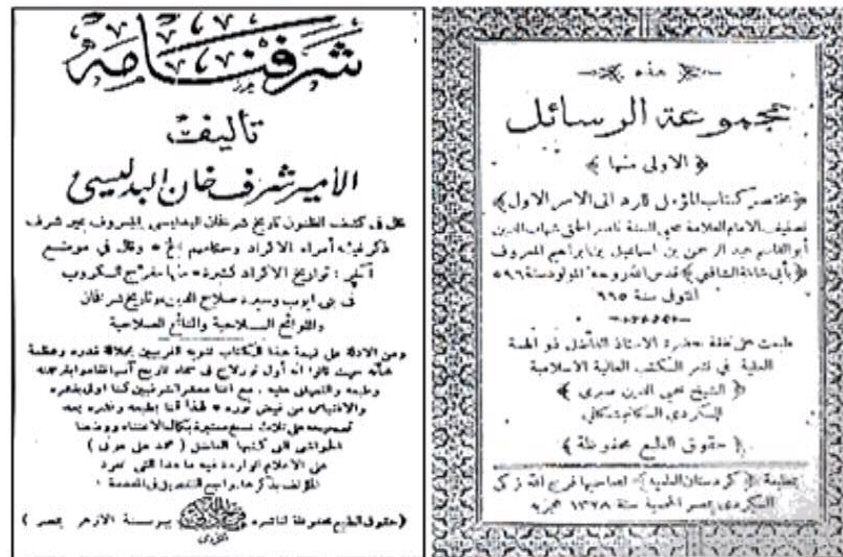 شرفنامه
تأليف
الأمير شرف خان البدليسى
قال فى كشف الظنون تاريخ شرفخان البدليسى المعروف بمير شرف
ذكر فيه أمراء الاكراد وحكامهم الخ * وقال فى موضع
آخر : تواريخ الاكراد كثيرة * منها مفرج الكروب
فى بنى ايوب وسيرة صلاح الدين وتاريخ شرفخان
والفوائح الصلاحية
ومن الادلة على قيمة هذا الكتاب تنويه الغربيين بجلالة قدره وعظمة
شأنه حيث قالوا انه أول نور لاح فى سماء تاريخ آسيا فقاموا بترجمته
وطبعه والتعليق عليه . مع اننا معشر الشرقيين كنا اولى بنشره
والاقتباس من فيض نوره * لهذا قمنا بطبعه ونشره بعد
تصحيحه على ثلاث نسخ معتبرة بكمال الاعتناء ووضعنا
الحواشى التى كتبها الفاضل ( محمد على عونى )
على الاعلام الواردة فيه ما عدا التى تفرد
المؤلف بذكرها . وراجع التفصيل فى المقدمة
( حقوق الطبع محفوظة لناشره
بمصر )
هذه
مجموعة الرسائل
﴿ الاولى منها ﴾
﴿ مختصر كتاب المؤمل للرد الى الامر الاول ﴾
تصنيف الامام العلامة محيى السنة ناصر الحق شهاب الدين
أبو القاسم عبد الرحمن بن اسماعيل بن ابراهيم المعروف
﴿ بأبى شامة الشافعى ﴾ قدس الله روحه المولود سنة ٥٩٦
المتوفى سنة ٦٦٥
طبعت على نفقة حضرة الاستاذ الفاضل ذو الهمة
العلية فى نشر الكتب العالية الاسلامية
﴿ الشيخ محيى الدين صبرى ﴾
الكردى السكانيمشكانى
﴿ حقوق الطبع محفوظة ﴾
بمطبعة ﴿ كردستان العلمية ﴾ لصاحبها فرج الله زكى
الكردى بمصر المحمية سنة ١٣٢٨ هجريه